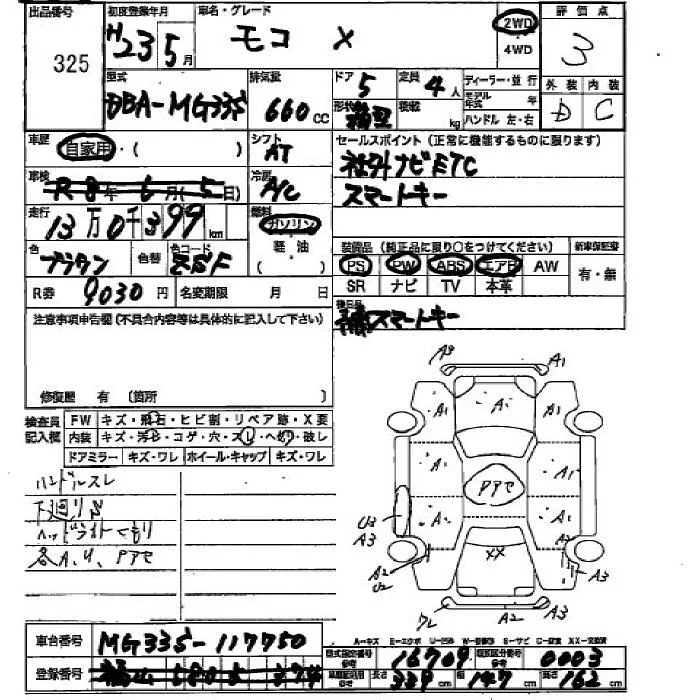 出品番号 初度登録年月 車名・グレード 2WD 評価点
325 H23 5月 モコ X ・4WD 3
型式 排気量 ドア 5 定員 4人 ディーラー・並行 外装 内装
DBA-MG33S 660cc 形状 箱型 積載 kg モデル年式 年 D C
ハンドル 左・右
車歴 自家用・( ) シフト AT セールスポイント (正常に機能するものに限ります)
社外ナビ ETC
車検 R8年6月(5日) 冷房 A/C スマートキー
走行 13万0千399km 燃料 ガソリン
軽油 ( )
色 ブラウン 色替 色コード 装備品 (純正品に限り○をつけてください) 新車保証書
PS PW ABS エアB AW 有・無
SR ナビ TV 本革
R券 9030円 名変期限 月 日 後日品
注意事項申告欄 (不具合内容等は具体的に記入して下さい) スマートキー
修復歴 有 (箇所 )
検査員記入欄 FW キズ・飛石・ヒビ割・リペア跡・X要
内装 キズ・汚れ・コゲ・穴・スレ・ヘタリ・破レ
ドアミラー キズ・ワレ ホイール・キャップ キズ・ワレ
ハンドルスレ
下廻りS
ヘッドライトくもり
各A、U、Pアセ
A3 A1
A1 A1 A1
A1 Pアセ A1
U3 A3 A1 A1 A2
A2 U2 XX A3
ワレ A2 A3
A-キズ E-エクボ U-凹み W-補修跡 S-サビ C-腐食 XX-交換済
車台番号 MG33S-117750 型式指定番号 参考 16709 類別区分番号 参考 0003
登録番号 福山 580 長さ 339cm 幅 147cm 高さ 162cm